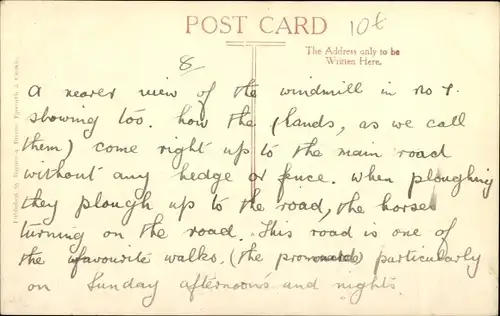 POST CARD
10t
The Address only to be
Written Here.
8
A nearer view of the windmill in no 7.
showing too. how the (lands, as we call
them) come right up to the main road
without any hedge or fence. When ploughing
they plough up to the road, the horses
turning on the road. This road is one of
the favourite walks. (the promenade) particularly
on Sunday afternoons and nights.